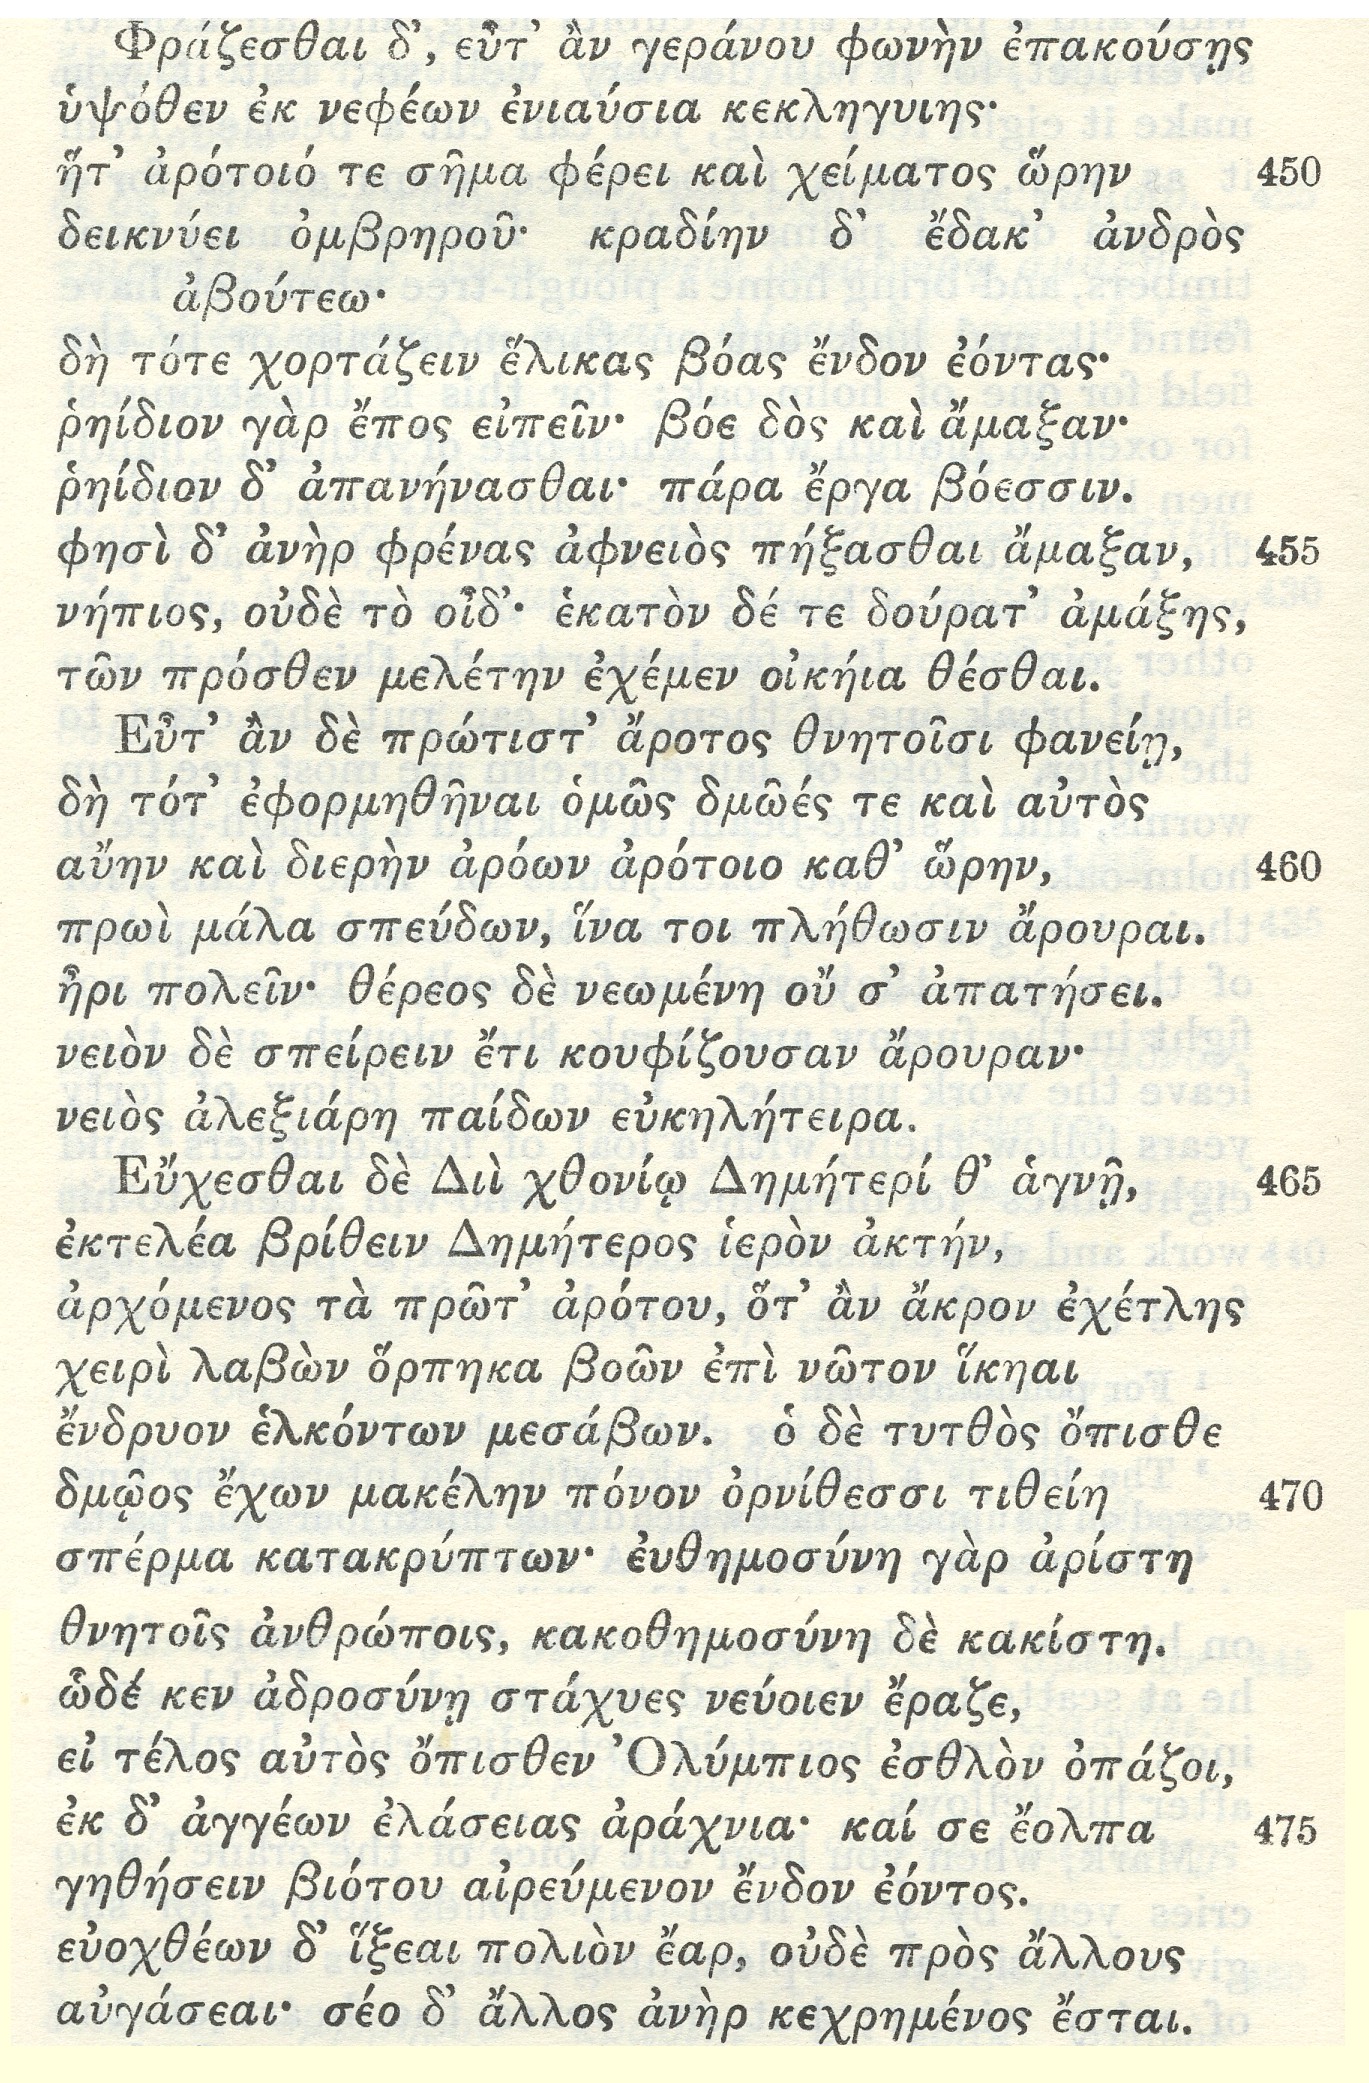 Φράζεσθαι δ’, εὖτ’ ἂν γεράνου φωνὴν ἐπακούσῃς
ὑψόθεν ἐκ νεφέων ἐνιαύσια κεκληγυιης·
ἥτ’ ἀρότοιό τε σῆμα φέρει καὶ χείματος ὥρην 450
δεικνύει ὀμβρηροῦ· κραδίην δ’ ἔδακ’ ἀνδρὸς
ἀβούτεω·
δὴ τότε χορτάζειν ἕλικας βόας ἔνδον ἐόντας·
ῥηίδιον γὰρ ἔπος εἰπεῖν· βόε δὸς καὶ ἄμαξαν·
ῥηίδιον δ’ ἀπανήνασθαι· πάρα ἔργα βόεσσιν.
φησὶ δ’ ἀνὴρ φρένας ἀφνειὸς πήξασθαι ἄμαξαν, 455
νήπιος, οὐδὲ τὸ οἶδ’· ἑκατὸν δέ τε δούρατ’ ἀμάξης,
τῶν πρόσθεν μελέτην ἐχέμεν οἰκήια θέσθαι.
Εὖτ’ ἂν δὲ πρώτιστ’ ἄροτος θνητοῖσι φανείῃ,
δὴ τότ’ ἐφορμηθῆναι ὁμῶς δμῶές τε καὶ αὐτὸς
αὔην καὶ διερὴν ἀρόων ἀρότοιο καθ’ ὥρην, 460
πρωὶ μάλα σπεύδων, ἵνα τοι πλήθωσιν ἄρουραι.
ἦρι πολεῖν· θέρεος δὲ νεωμένη οὔ σ’ ἀπατήσει.
νειὸν δὲ σπείρειν ἔτι κουφίζουσαν ἄρουραν·
νειὸς ἀλεξιάρη παίδων εὐκηλήτειρα.
Εὔχεσθαι δὲ Διὶ χθονίῳ Δημήτερί θ’ ἁγνῇ, 465
ἐκτελέα βρίθειν Δημήτερος ἱερὸν ἀκτήν,
ἀρχόμενος τὰ πρῶτ’ ἀρότου, ὅτ’ ἂν ἄκρον ἐχέτλης
χειρὶ λαβὼν ὅρπηκα βοῶν ἐπὶ νῶτον ἵκηαι
ἔνδρυον ἑλκόντων μεσάβων. ὁ δὲ τυτθὸς ὄπισθε
δμῷος ἔχων μακέλην πόνον ὀρνίθεσσι τιθείη 470
σπέρμα κατακρύπτων· ἐυθημοσύνη γὰρ ἀρίστη
θνητοῖς ἀνθρώποις, κακοθημοσύνη δὲ κακίστη.
ὧδέ κεν ἁδροσύνῃ στάχυες νεύοιεν ἔραζε,
εἰ τέλος αὐτὸς ὄπισθεν Ὀλύμπιος ἐσθλὸν ὀπάζοι,
ἐκ δ’ ἀγγέων ἐλάσειας ἀράχνια· καί σε ἔολπα 475
γηθήσειν βιότου αἰρεύμενον ἔνδον ἐόντος.
εὐοχθέων δ’ ἵξεαι πολιὸν ἔαρ, οὐδὲ πρὸς ἄλλους
αὐγάσεαι· σέο δ’ ἄλλος ἀνὴρ κεχρημένος ἔσται.